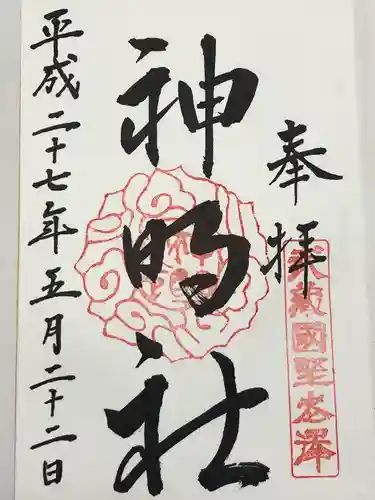 奉拝
武蔵國聖志澤
神明社
平成二十七年五月二十二日